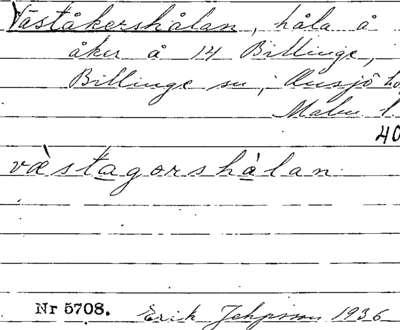 Väståkershålan, håla å
åker å 14 Billinge,
Billinge sn, Onsjö hd,
Malm. l.
40
væ̀stagorshàlan
Nr 5708. Erik Jeppsson 1936